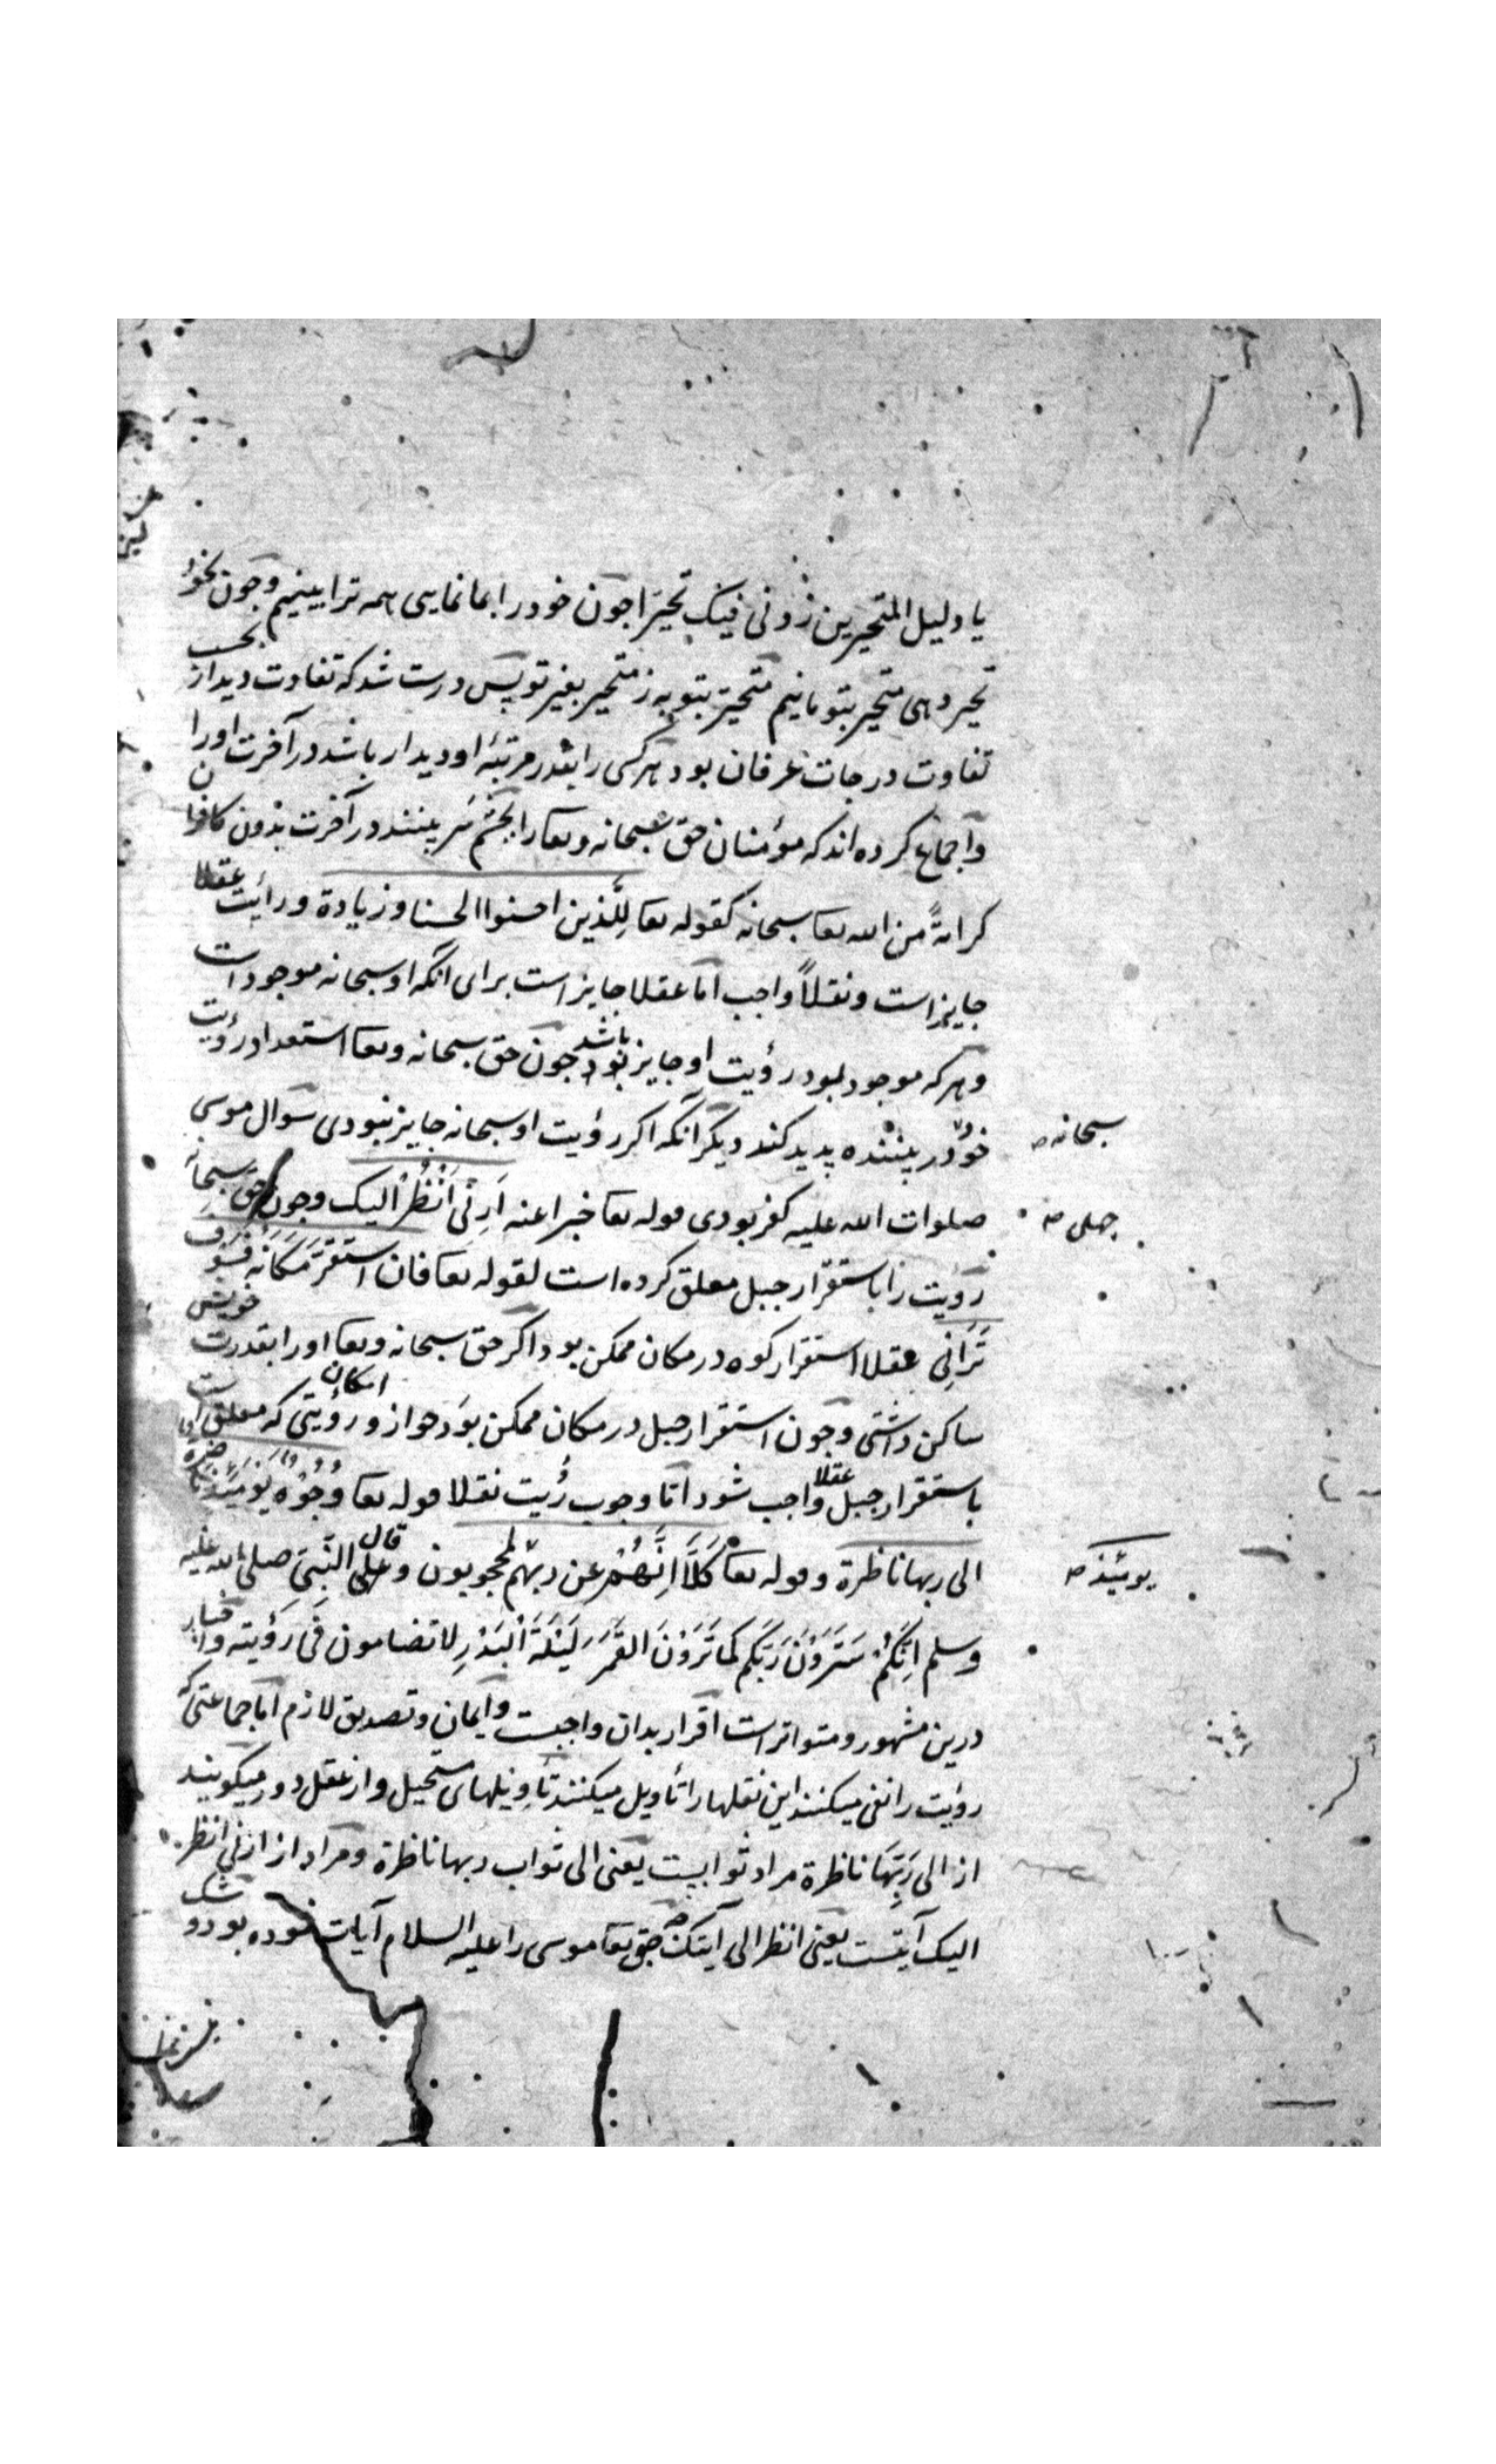 یا دلیل المتحیرین زدنی فیک تحیّرا جون خود را بما نمایی همه ترا بینیم وجون بخود
تحیر دهی متحیر بتو مانیم متحیّر بتو به ز متحیر بغیر تو پس درست شد که تفاوت دیدار بحسب
تفاوت درجات عرفان بود هر کسی را بقدر مرتبهٔ او دیدار باشد در آخرت او را
واجماع کرده اند که مؤمنان حق سبحانه وتعا را بچشم سر بینند در آخرت بدون کافران
کرامةً من الله تعا سبحانه کقوله تعا لِلَّذین احسنوا الحسنا وزیادة ورایت عقلا
جایز است ونقلاً واجب امّا عقلا جایز است برای آنکه او سبحانه موجود است
وهر که موجود بود رؤیت او جایز بود باشد جون حق سبحانه وتعا استعداد رؤیت
خود در بیننده پدید کند دیگر آنکه اکر رؤیت او سبحانه جایز نبودی سوال موسی
سبحانه صح
صلوات الله علیه کفر بودی قوله تعا خبرا عنه اَرِنی اَنْظُرْ الیک وجون حق سبحانه
جلی صح
رؤیت را باستقرار جبل معلق کرده است لقوله تعا فان استَقَرَّ مَکَانَه فَسَوْفَ
تَرَانِی عقلا استقرار کوه در مکان ممکن بود اکر حق سبحانه وتعا او را بقدرت خویش
ساکن داشتی وجون استقرار جبل در مکان ممکن بوَد جواز و امکان رؤیتی که معلق است
باستقرار جبل عقلا واجب شود امّا وجوب رُیت نقلا قوله تعا وُجُوْهٌ یَوْمَئِذٍ نَاضِرَة
الی ربها ناظرة وقوله تعا کَلَّا اِنَّهُمْ عن ربّهم لمحجوبون و قال علی النّبیّ صلی الله علیه
یومئیذ صح
وسلم اِنَّکُمْ سَتَرَوْنَ رَبَّکُم کَمَا تَرَوْنَ القَمَرَ لَیْلَةَ الْبَدْرِ لا تضامون فی رؤیته واخبار
درین مشهور ومتواتر است اقرار بدان واجبست وایمان وتصدیق لازم امّا جماعتی که
رویت را نفی میکنند این نقلها را تأویل میکنند تأویلهای مستحیل واز عقل دور میکویند
از الی رَبِّهَا ناظرة مراد ثوابیست یعنی الی ثواب ربها ناظرة ومراد از ارنی انظر
الیک آیتست یعنی انظر الی آیتک حق تعا موسی را علیه السلام آیات نموده بود و